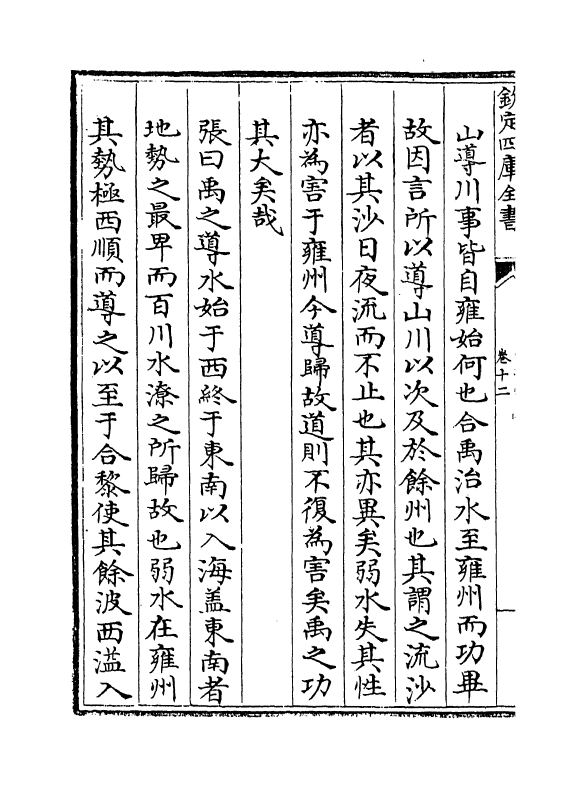 欽定四庫全書
卷十二
山導川事皆自雍始何也合禹治水至雍州而功畢
故因言所以導山川以次及於餘州也其謂之流沙
者以其沙日夜流而不止也其亦異矣弱水失其性
亦為害于雍州今導歸故道則不復為害矣禹之功
其大矣哉
張曰禹之導水始于西終于東南以入海盖東南者
地勢之最卑而百川水潦之所歸故也弱水在雍州
其勢極西順而導之以至于合黎使其餘波西溢入